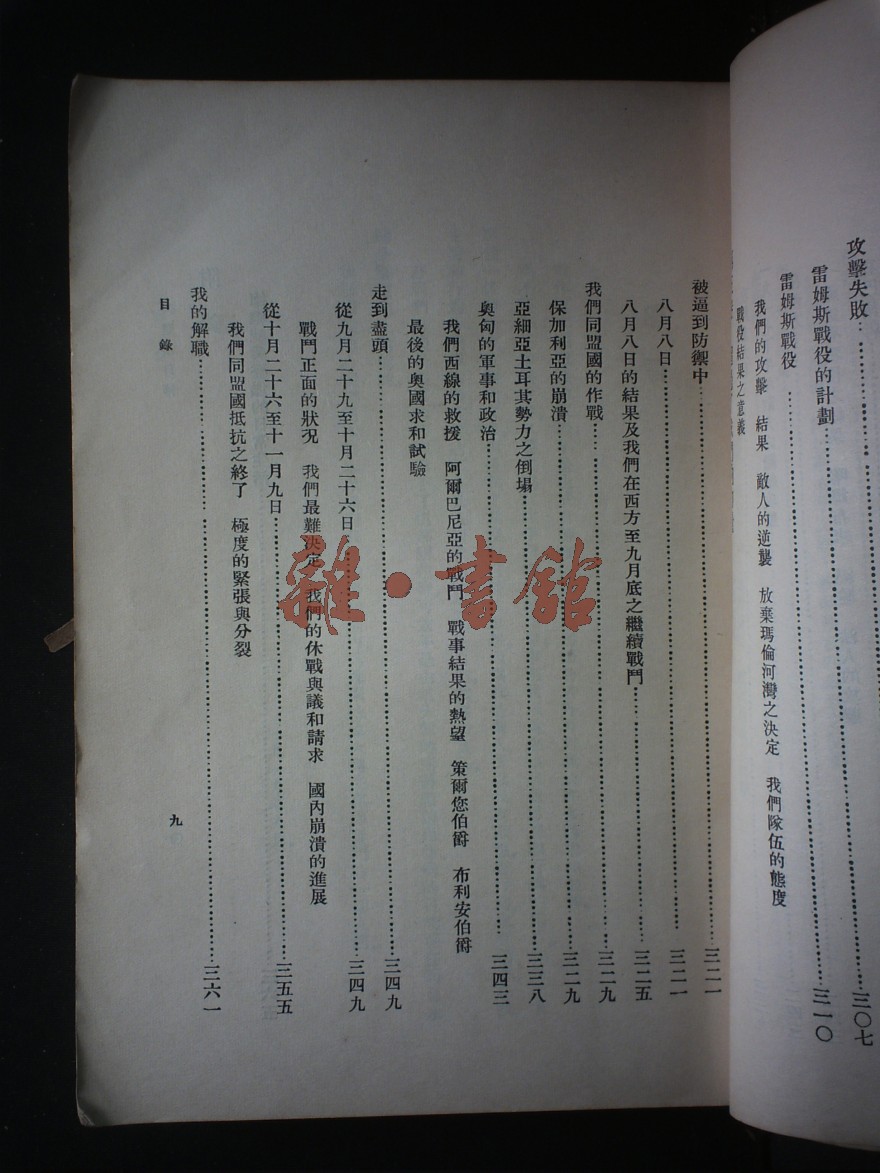 攻擊失敗……三〇七
雷姆斯戰役的計劃……三一〇
雷姆斯戰役……
我們的攻擊 結果 敵人的逆襲 放棄瑪倫河灣之決定 我們隊伍的態度
戰役結果之意義
被逼到防禦中……三二一
八月八日……三二一
八月八日的結果及我們在西方至九月底之繼續戰鬥……三二五
我們同盟國的作戰……三二九
保加利亞的崩潰……三二九
亞細亞土耳其勢力之倒塌……三三八
奧匈的軍事和政治……三四三
我們西線的救援 阿爾巴尼亞的戰鬥 戰事結果的熱望 策爾您伯爵 布利安伯爵
最後的奧國求和試驗
走到盡頭……三四九
從九月二十九至十月二十六日……三四九
戰鬥正面的狀況 我們最難決定 我們的休戰與議和請求 國內崩潰的進展
從十月二十六至十一月九日……三五五
我們同盟國抵抗之終了 極度的緊張與分裂
我的解職……三六一
目錄
九
雜·書館